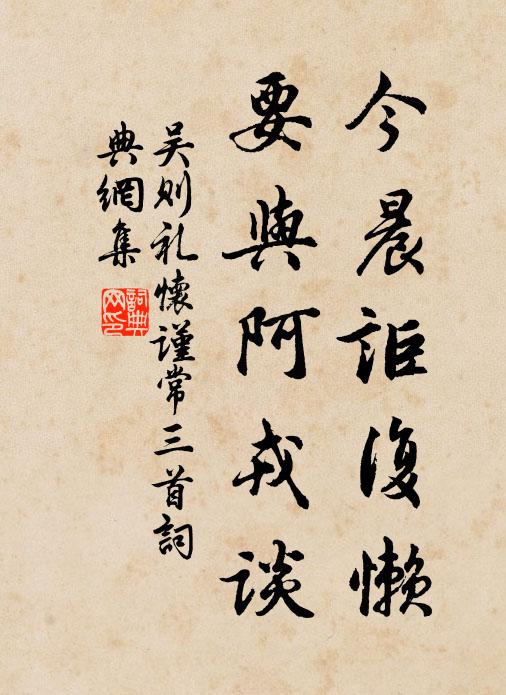 今晨詎復懶
要與阿戎談
吴则礼懷謹常三首詞
典網集
詞典網印